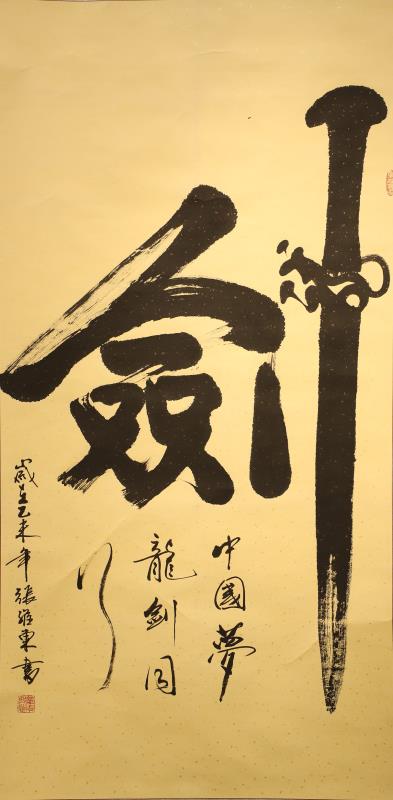 劍
中國夢
龍劍同
行
歲在乙未年張東書